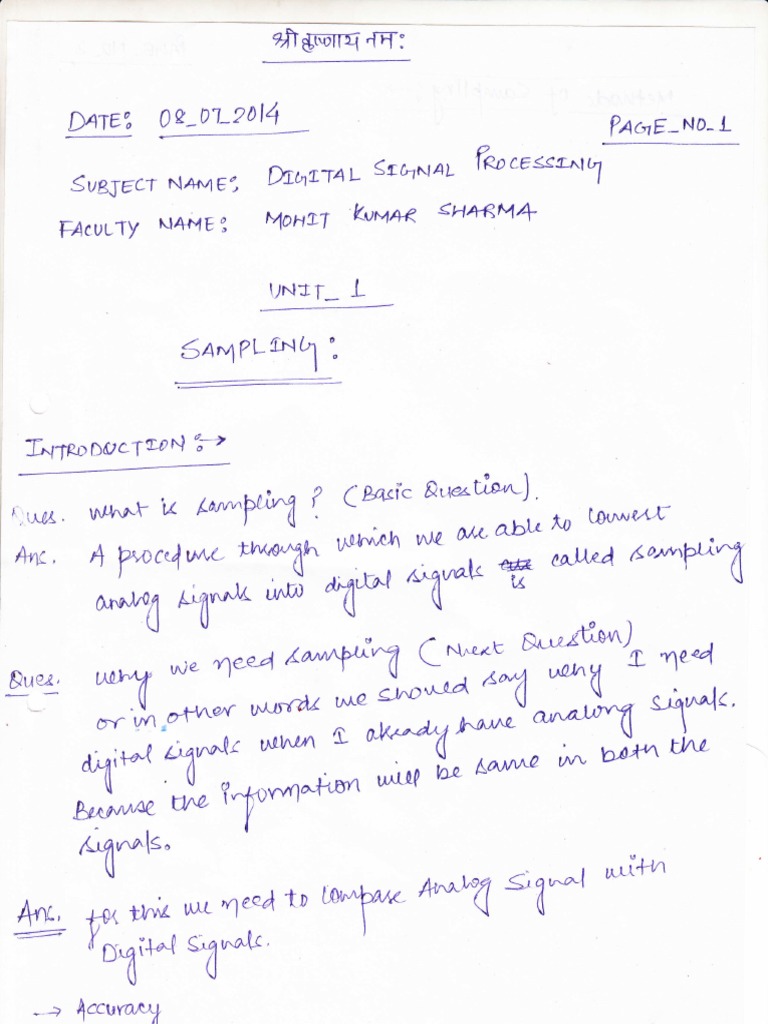 श्री कृष्णाय नमः
DATE: 08_07_2014
PAGE_NO_1
SUBJECT NAME: DIGITAL SIGNAL PROCESSING
FACULTY NAME: MOHIT KUMAR SHARMA
UNIT_1
SAMPLING:
INTRODUCTION:→
Ques. What is sampling? (Basic Question).
Ans. A procedure through which we are able to convert
analog signals into digital signals is called sampling
Ques. why we need sampling (Next Question)
or in other words we should say why I need
digital signals when I already have analong signals.
Because the information will be same in both the
signals.
Ans. for this we need to compare Analog Signal with
Digital Signals.
→ Accuracy